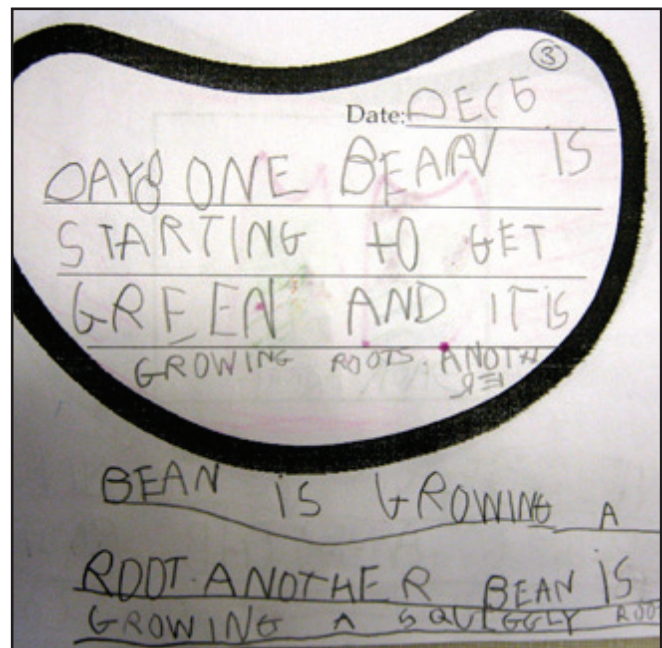 3
Date: DEC 5
DAY8 ONE BEAN IS
STARTING TO GET
GREEN AND IT IS
GROWING ROOTS. ANOTH
ER
BEAN IS GROWING A
ROOT. ANOTHER BEAN IS
GROWING A SQUIGGLY ROO